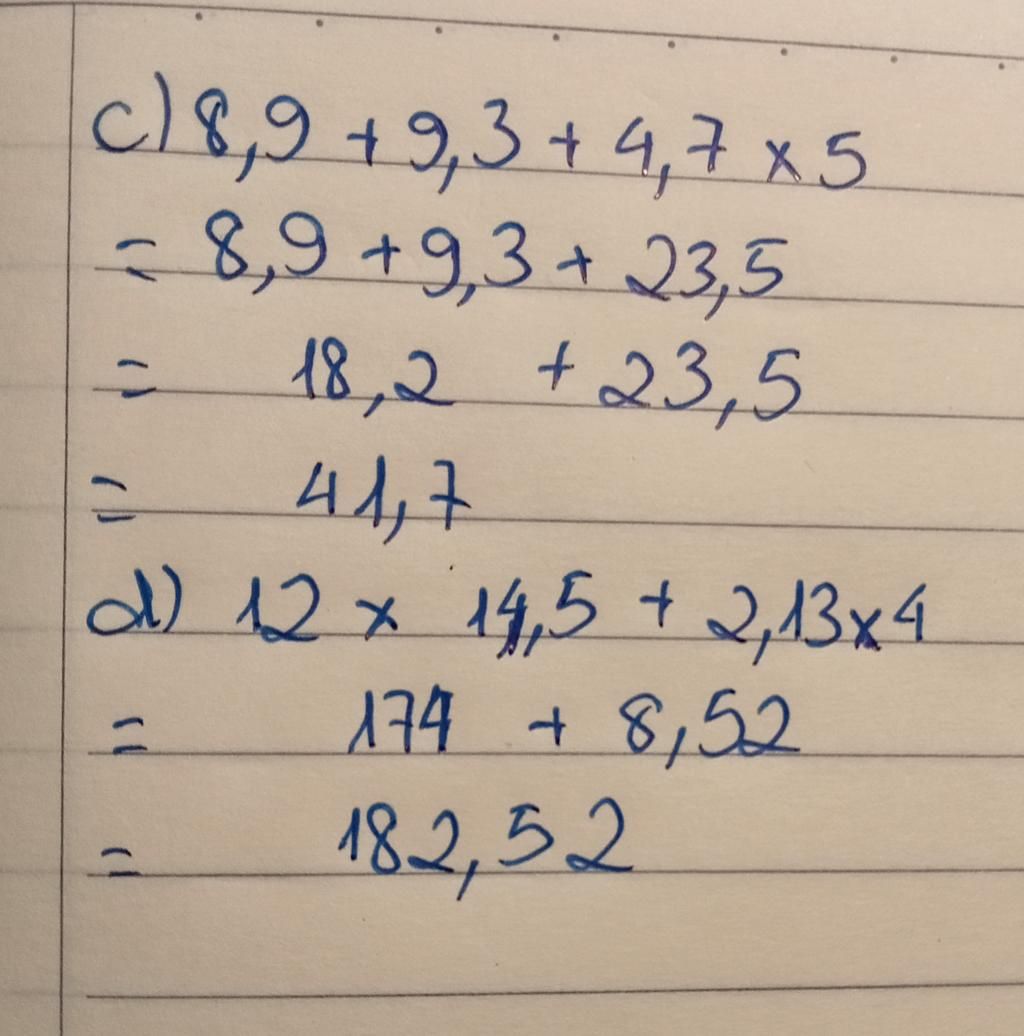 c) 8,9 + 9,3 + 4,7 x 5
= 8,9 + 9,3 + 23,5
= 18,2 + 23,5
= 41,7
d) 12 x 14,5 + 2,13 x 4
= 174 + 8,52
= 182,52